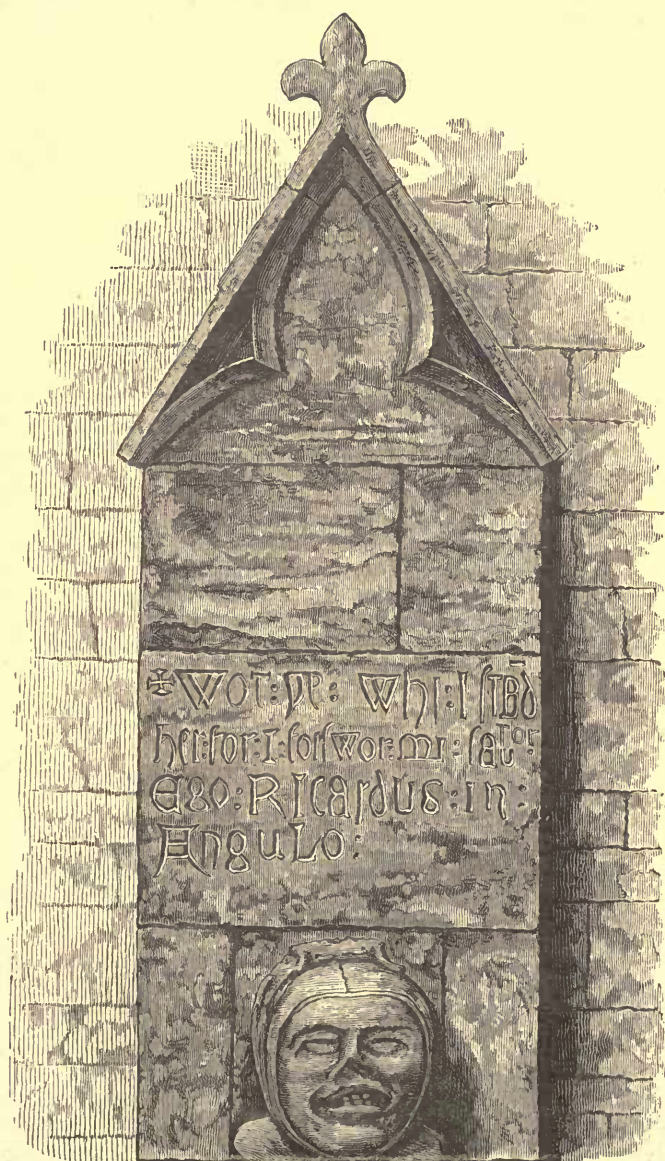 ✠ WOT: ȝe: Whi: I ſTAD̄
her: for: I: forſwor: mi: ſauᵉᵒʳ:
EGO: RICARDUS: In:
AnguLo: